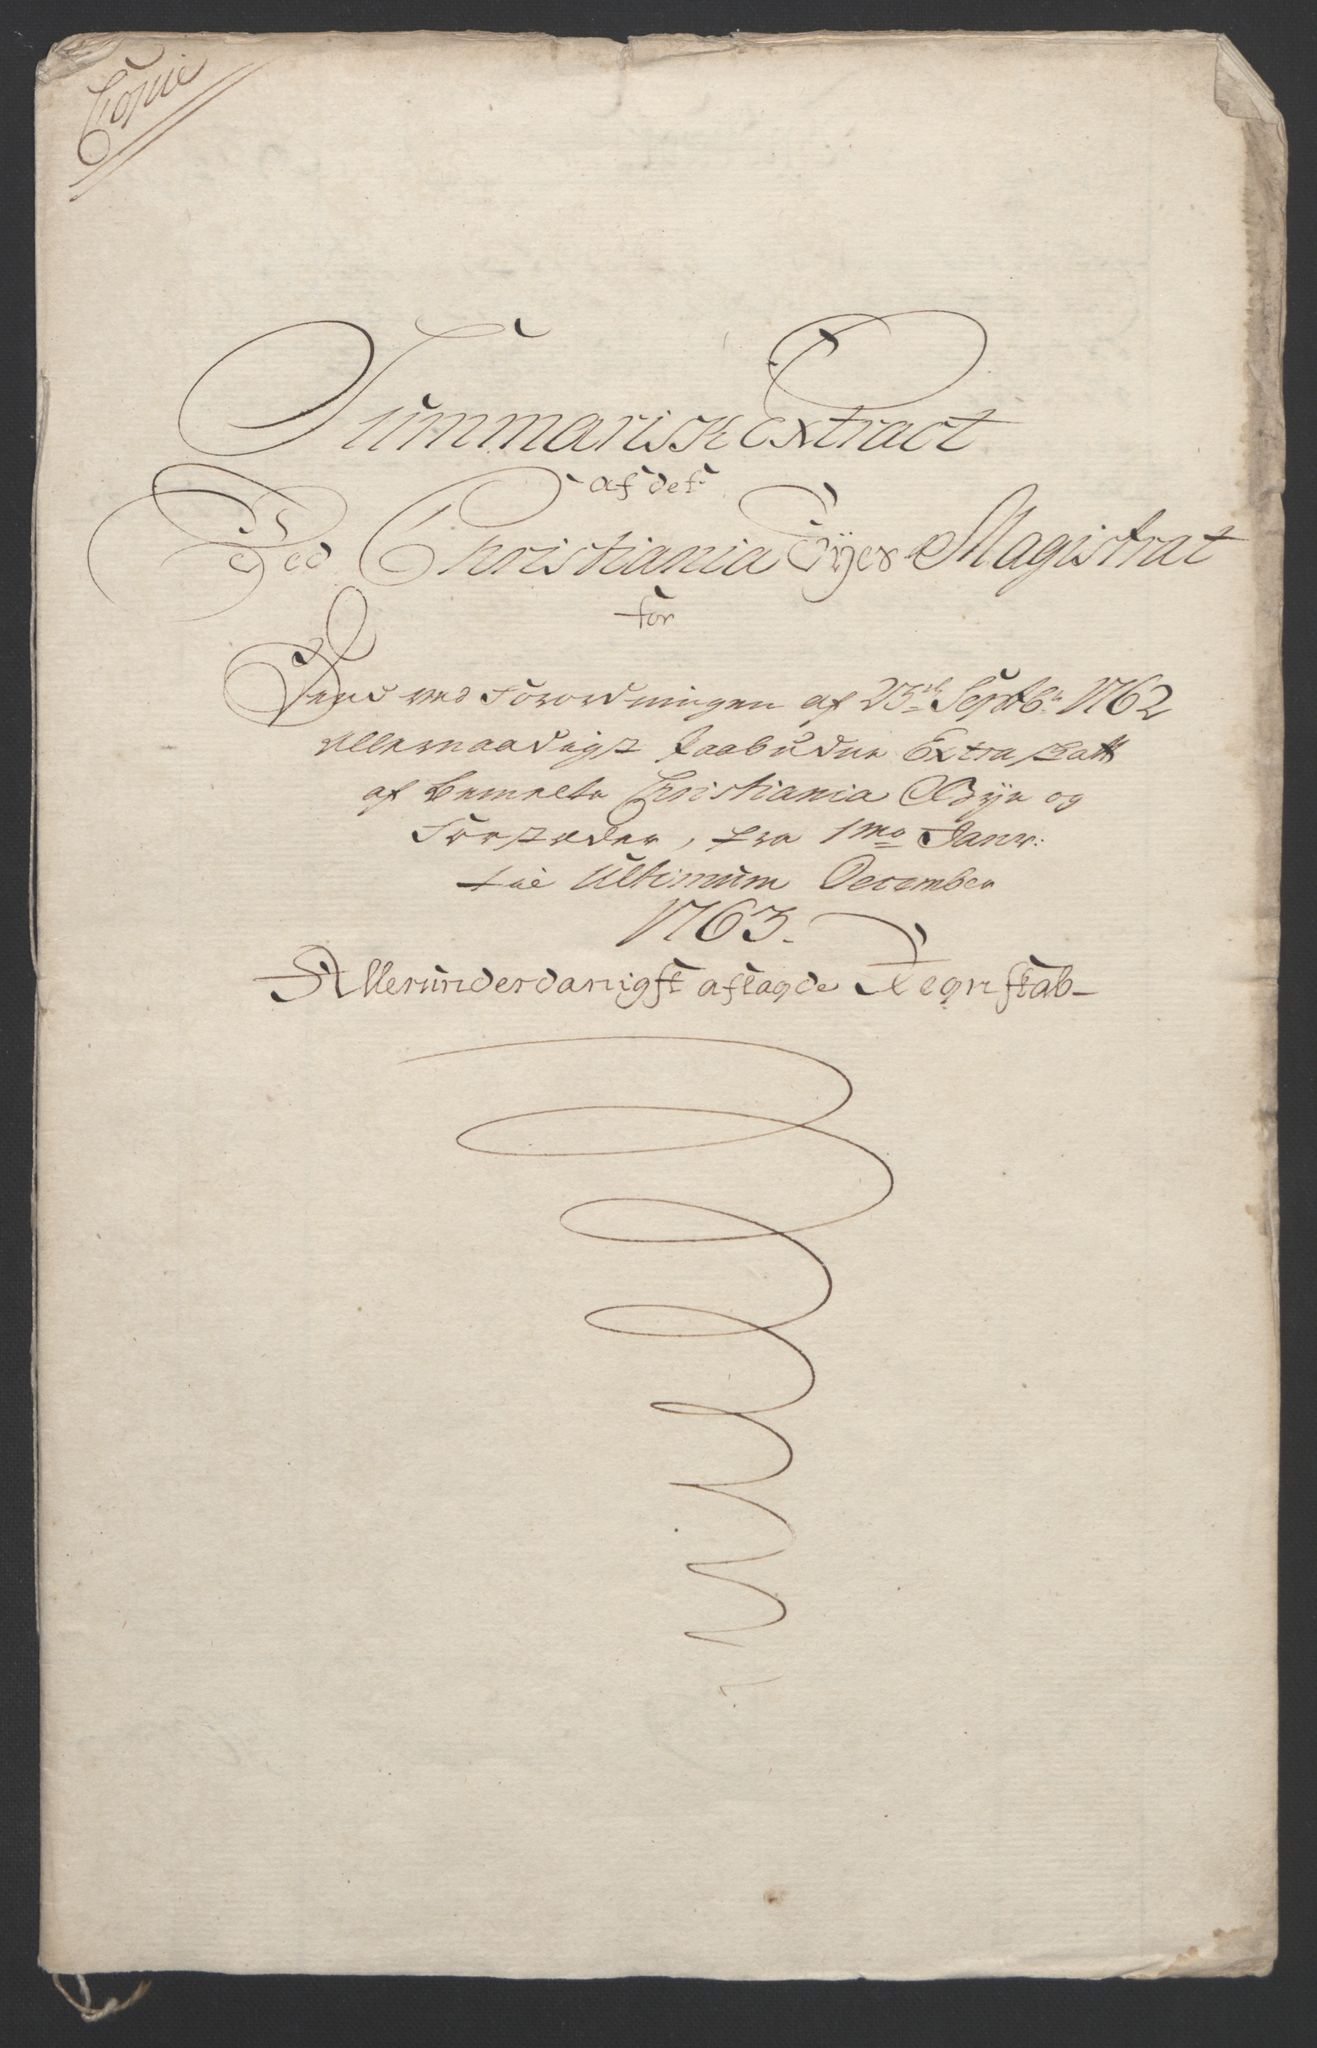 Copie
Summarisk Extract
af det
Ved Christiania Byes Magistrat
for
Dend ved Forordningen af 23de Septbr: 1762
allernaadigst paabudne Extra Skatt
af bemelte Christiania Bye og
Forstæder, fra 1mo Janr:
til Ultimum December
1763.
Allerunderdanigst aflagde Regnskab